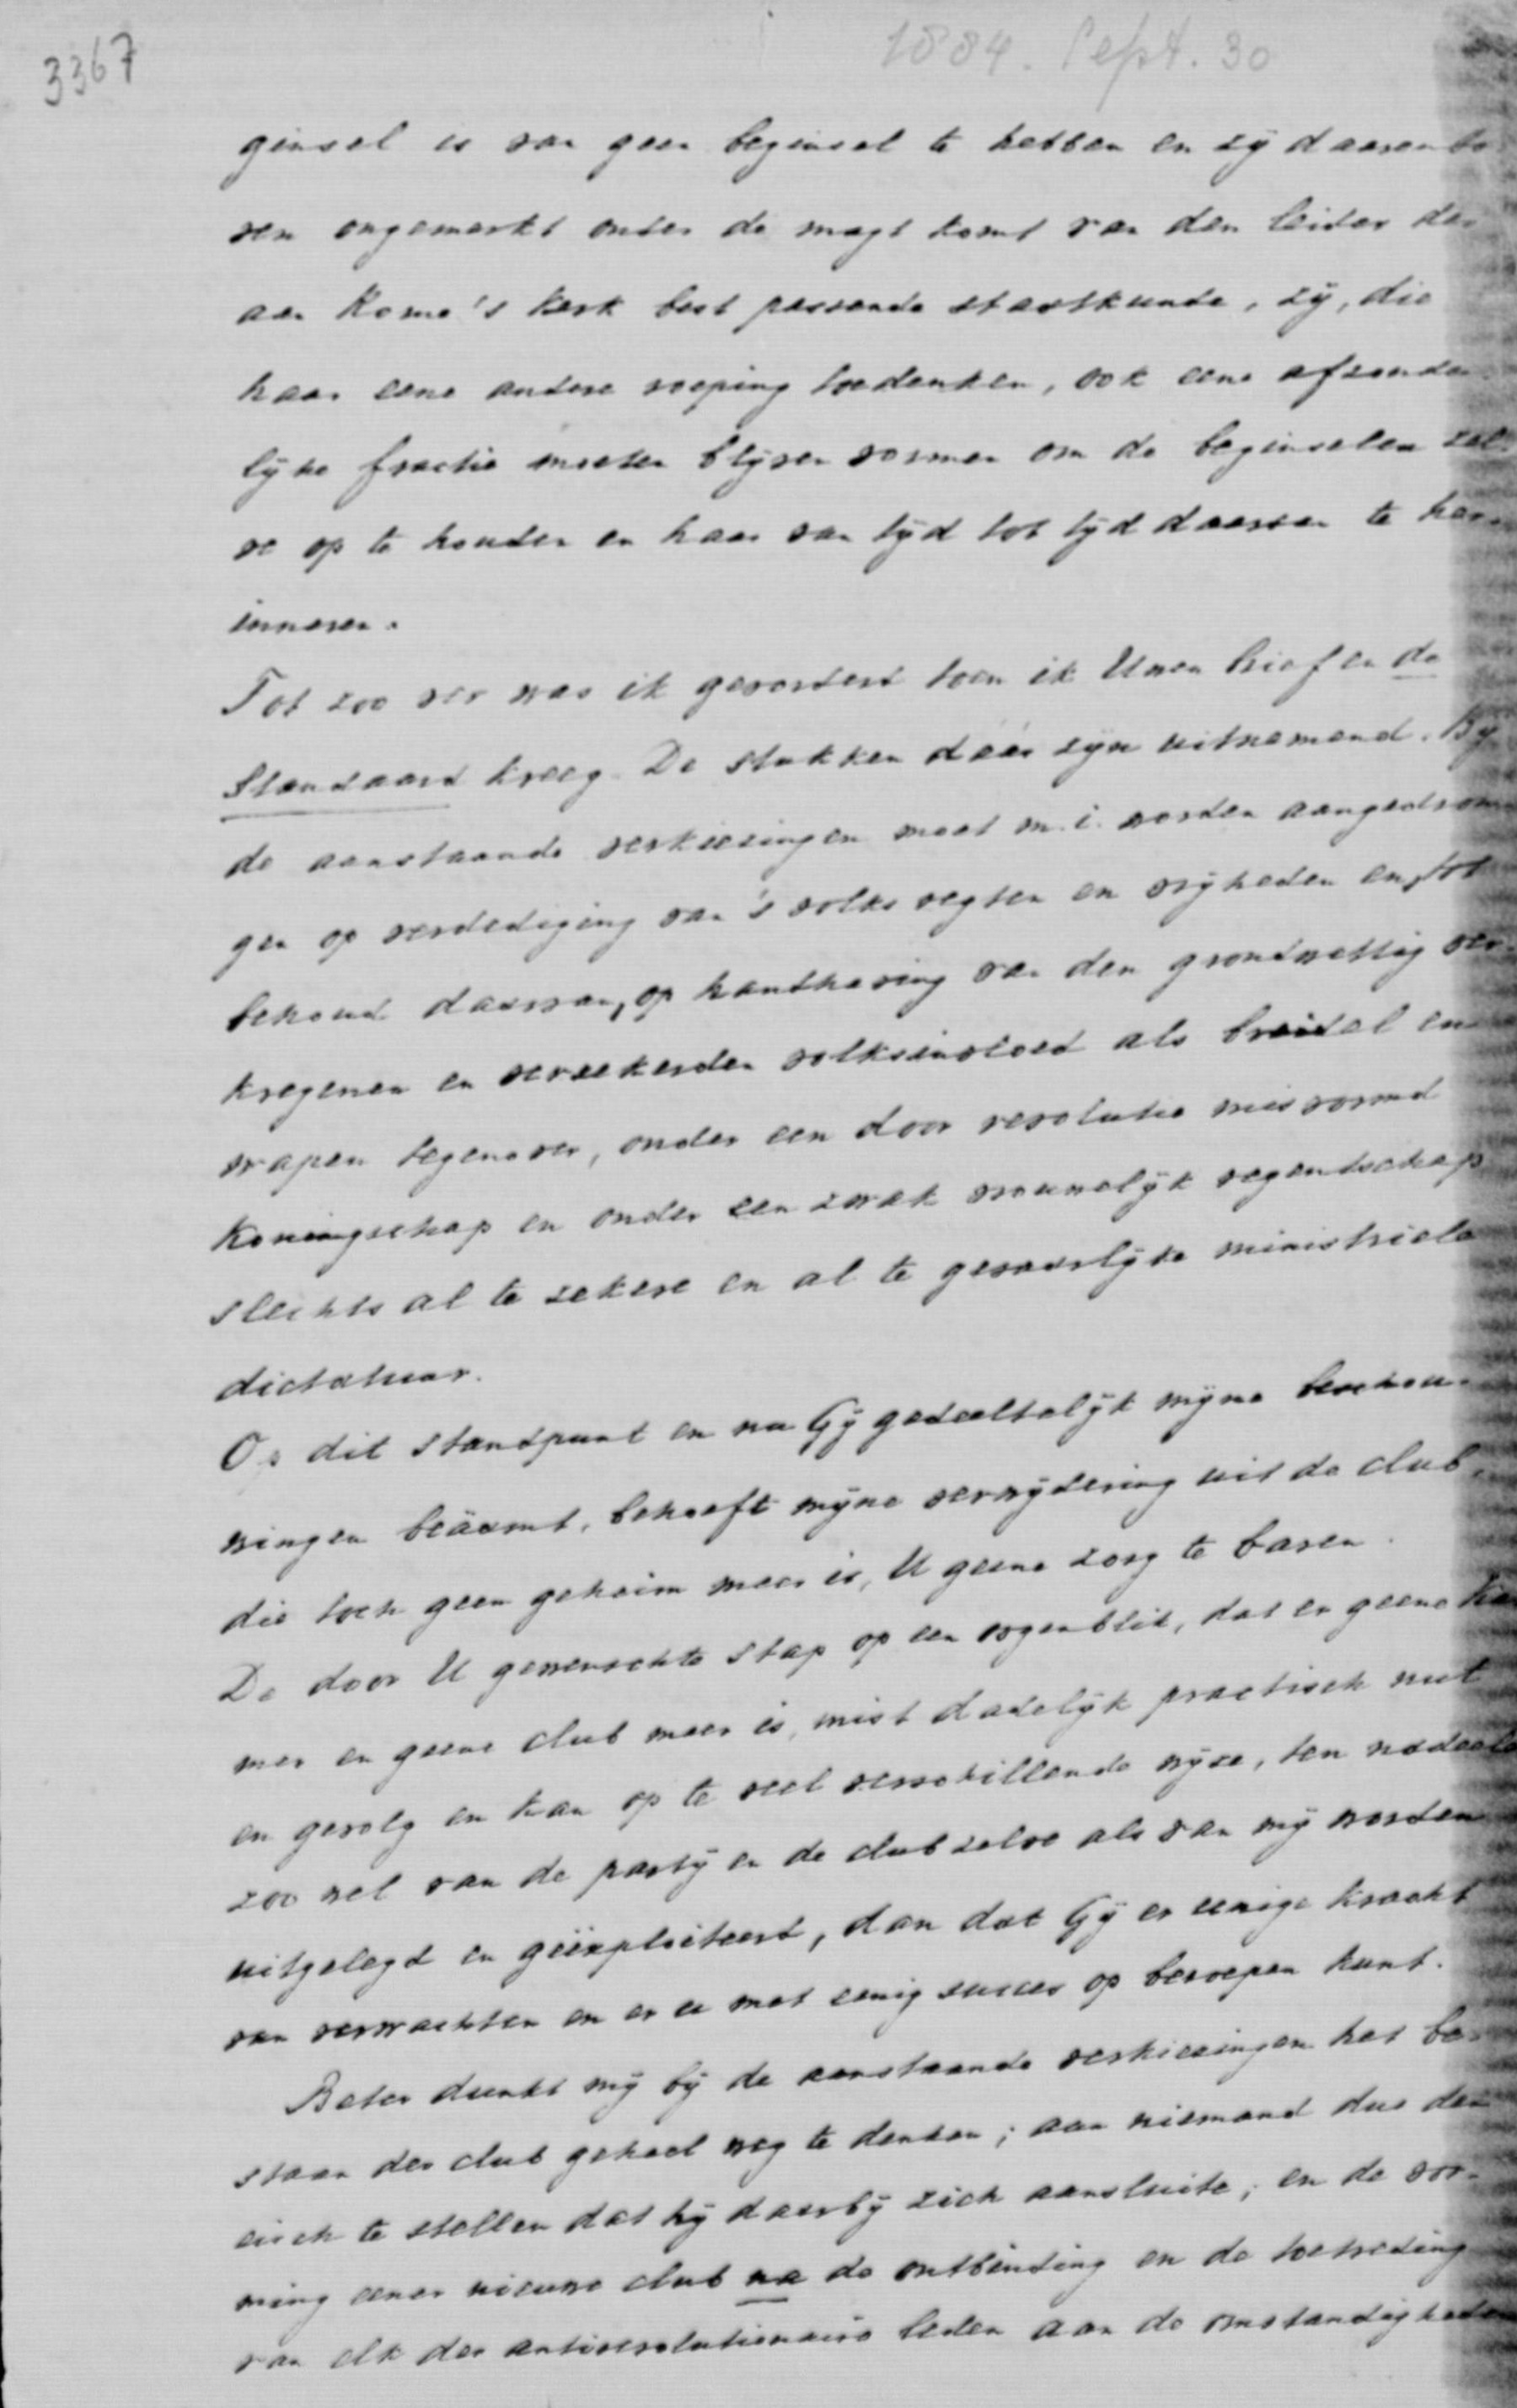 3367
1884. Sept. 30
ginsel is van geen beginsel te hebben en zij daarenbo
ven ongemerkt onder de magt komt van den leider der
aan Rome's kerk best passende staatkunde, zij, die
haar eene andere roeping toedenken, ook eene afzonder
lijke fractie moeten blijven vormen om de beginselen zel-
ve op te houden en haar van tijd tot tijd daaraan te her-
inneren.
Tot zoo ver was ik gevorderd toen ik Uwen brief en de
Standaard kreeg. De stukken dáár zijn uitnemend. Bij
de aanstaande verkiezingen moet m.i. worden aangedron
gen op verdediging van 's volks regten en vrijheden en, tot
behoud daarvan, op handhaving van den grondwettig ver-
kregenen en verzekerden volksinvloed als breidel en
wapen tegenover, onder een door revolutie misvormd
Koningschap en onder een zwak vrouwelijk regentschap
slechts al te zekere en al te gevaarlijke ministriele
dictatuur.
Op dit standpunt en nu Gij gedeeltelijk mijne beschou-
wingen beäamt, behoeft mijne verwijdering uit de club,
die toch geen geheim meer is, U geene zorg te baren.
De door U gewenschte stap op een oogenblik, dat er geene Ka
mer en geene club meer is, mist dadelijk practisch nut
en gevolg en kan op te veel verschillende wijze, ten nadeele
zoo wel van de partij en de club zelve als van mij worden
uitgelegd en geëxploiteerd, dan dat Gij er eenige kracht
van verwachten en er U met eenig succes op beroepen kunt.
Beter dunkt mij bij de aanstaande verkiezingen het be-
staan der club geheel weg te denken; aan niemand dus den
eisch te stellen dat hij daarbij zich aansluite; en de vor-
ming eener nieuwe club na de ontbinding en de toetreding
van elk der antirevolutionaire leden aan de omstandigheden